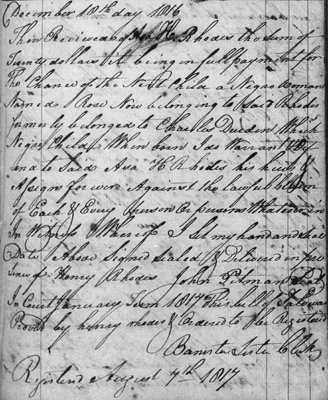 December 18th day 1816
Then Received of Asa H. Rhodes the Sum of
Twenty dollars it being in full payment for
The Chance of the Next Child a Negro Woman
Named Rose Now belonging to Said Rhodes
formerly belonged to Charles Durden Which
Negro Child When born I do Warrant
and to Said Asa H Rhodes his heirs &
Asigns for ever Against the lawful Claim
of Each & Every person Or persons Whatever in
In Witness Whereof I Set my hand and Seal
Date Above Signed Sealed & Delivered in pre
sence of Henry Rhodes John Pitman Seal
In Court January Term 1817 This bill of Sale was
Proved by henry rhodes & Ordered to be Registered
Clerk
Registered August 7th 1817